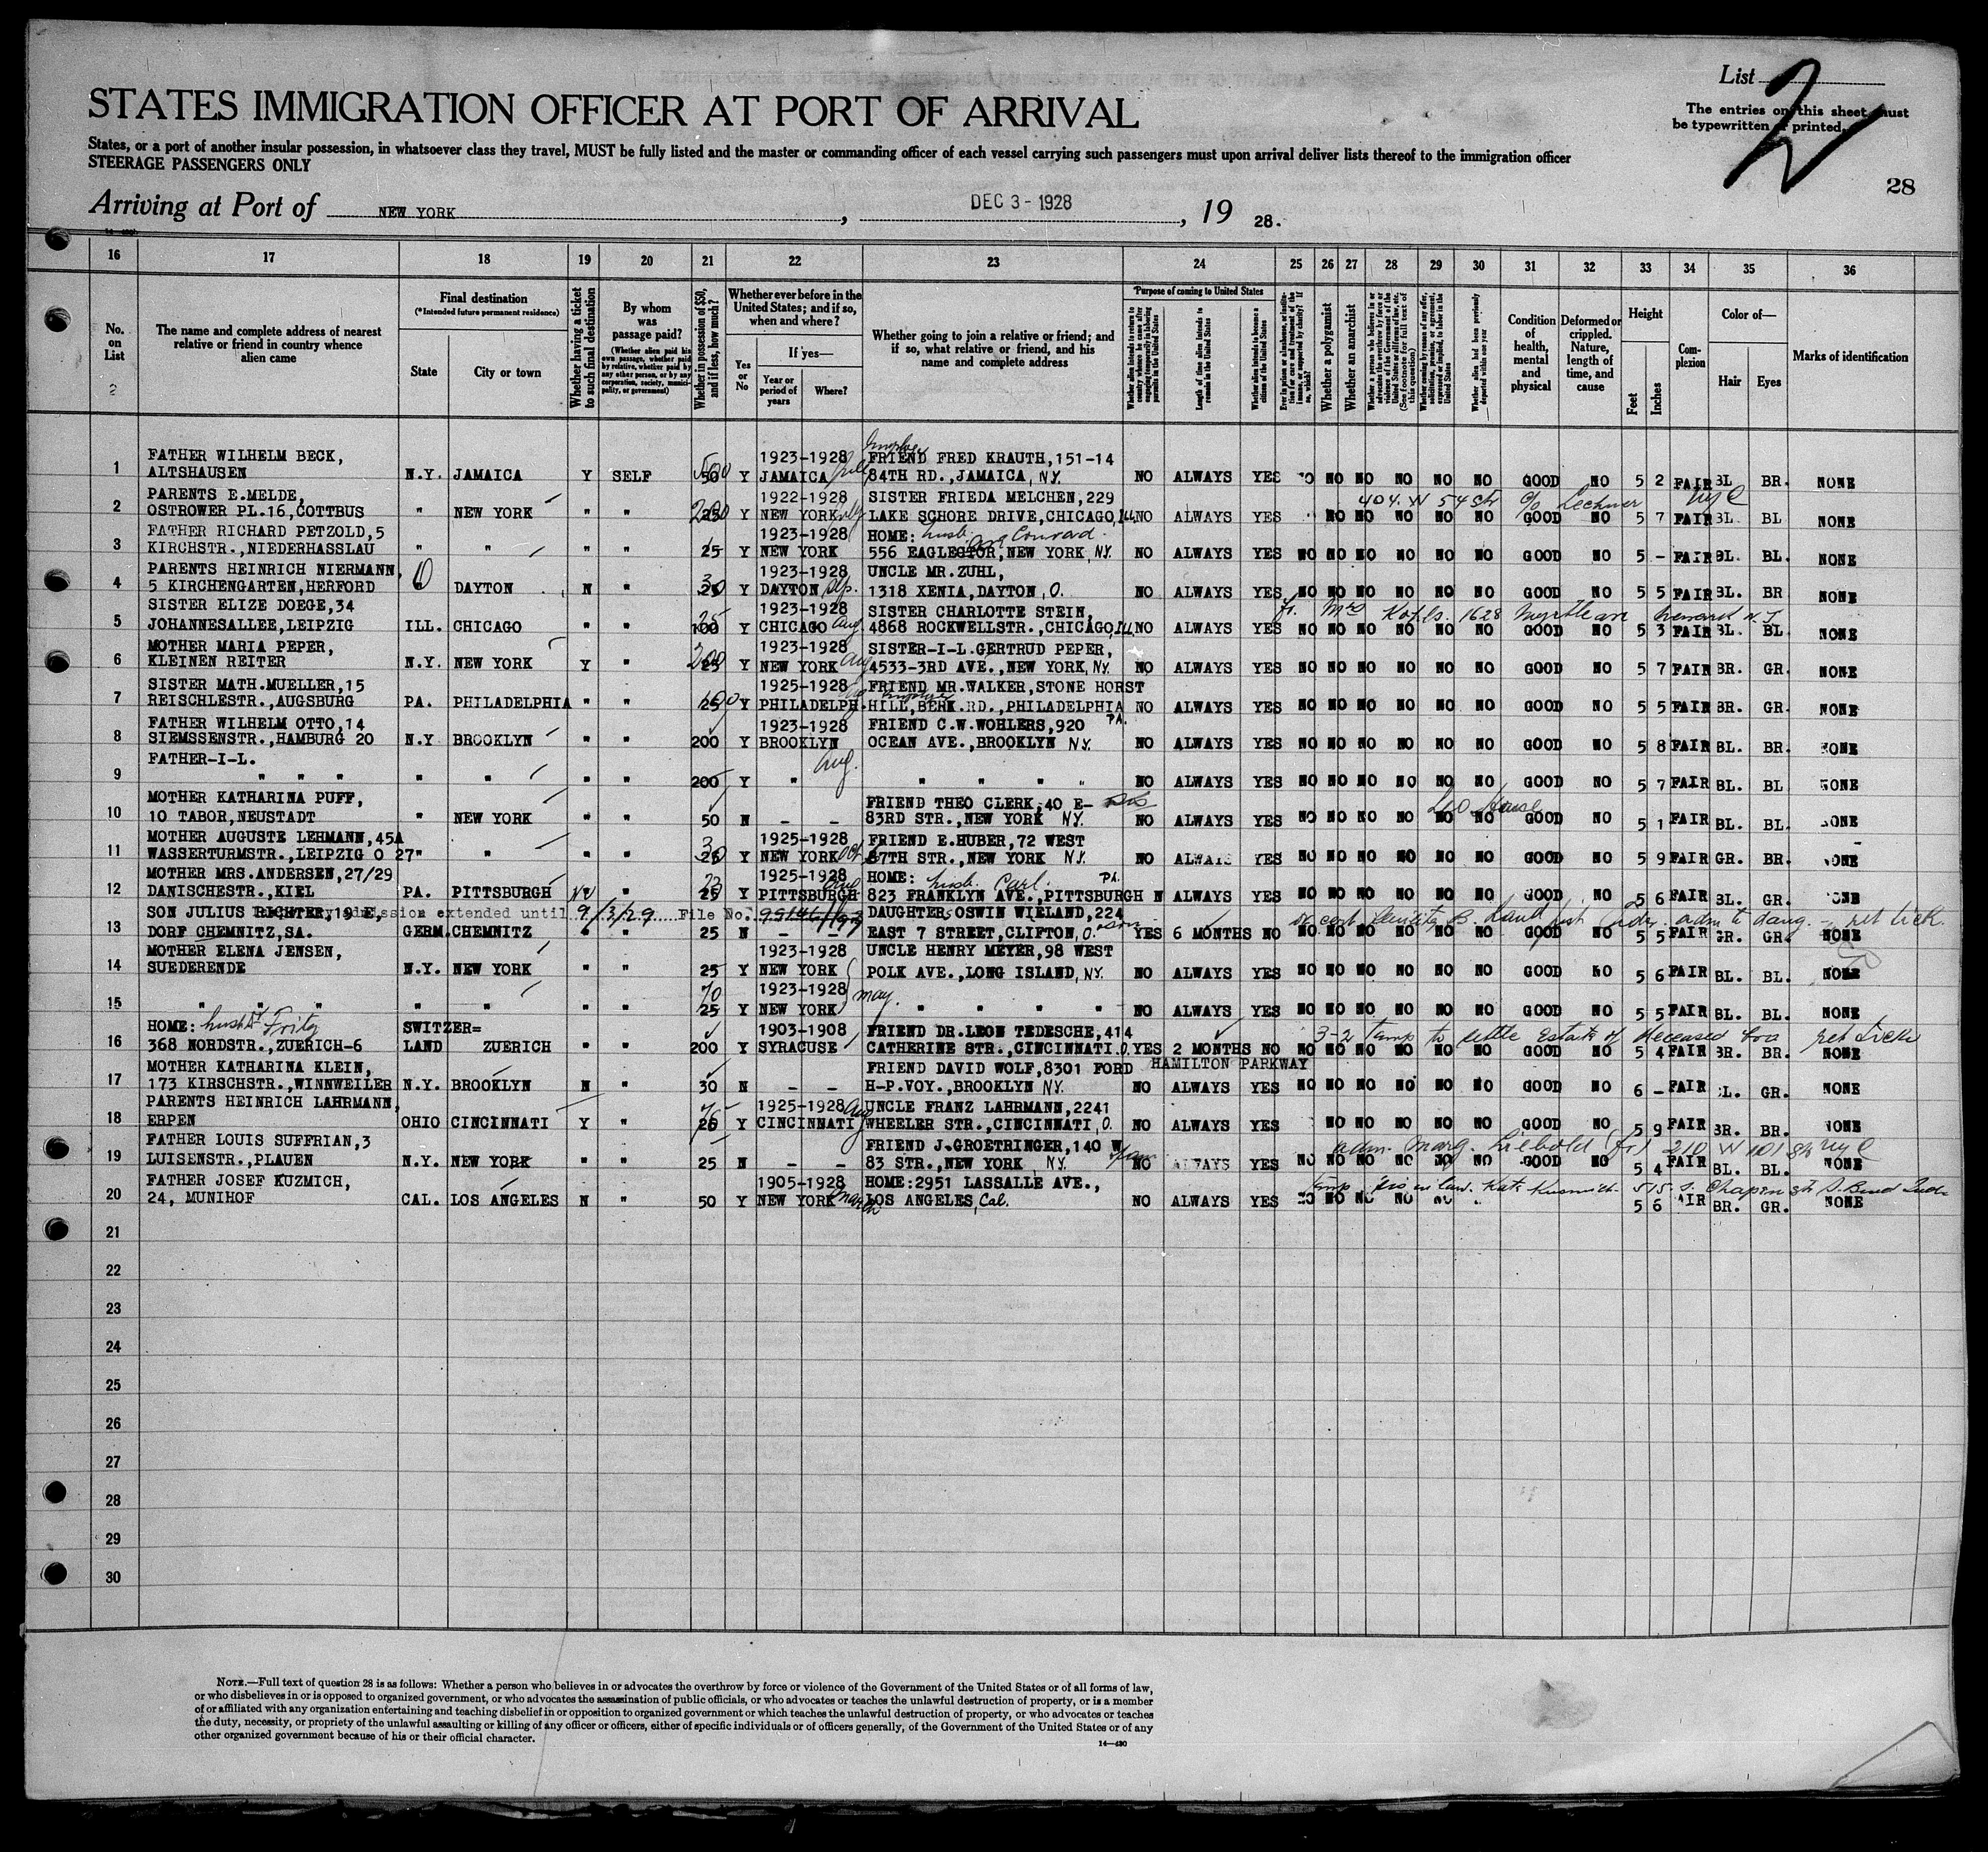 List 2
The entries on this sheet must
be typewritten or printed.
STATES IMMIGRATION OFFICER AT PORT OF ARRIVAL
States, or a port of another insular possession, in whatsoever class they travel, MUST be fully listed and the master or commanding officer of each vessel carrying such passengers must upon arrival deliver lists thereof to the immigration officer
STEERAGE PASSENGERS ONLY
28
Arriving at Port of NEW YORK, DEC 3 - 1928, 19 28.
16 17 18 19 20 21 22 23 24 25 26 27 28 29 30 31 32 33 34 35 36
No. on List
2
The name and complete address of nearest relative or friend in country whence alien came
Final destination
(*Intended future permanent residence)
State
City or town
Whether having a ticket to such final destination
By whom was passage paid?
(Whether alien paid his own passage, whether paid by relative, whether paid by any other person, or by any corporation, society, municipality, or government)
Whether in possession of $50, and if less, how much?
Whether ever before in the United States; and if so, when and where?
Yes or No
If yes—
Year or period of years
Where?
Whether going to join a relative or friend; and if so, what relative or friend, and his name and complete address
Purpose of coming to United States
Length of time alien intends to remain in the United States
Whether alien intends to become a citizen of the United States
Whether a polygamist
Whether an anarchist
Condition of health, mental and physical
Deformed or crippled. Nature, length of time, and cause
Height
Feet
Inches
Complexion
Color of—
Hair
Eyes
Marks of identification
1 FATHER WILHELM BECK, 1923-1928 FRIEND FRED KRAUTH,151-14
ALTSHAUSEN N.Y. JAMAICA Y SELF 50 Y JAMAICA 84TH RD.,JAMAICA, N.Y. NO ALWAYS YES NO NO NO NO NO NO GOOD NO 5 2 FAIR BL BR. NONE
2 PARENTS E.MELDE, 1922-1928 SISTER FRIEDA MELCHEN,229 404 W 54 Str c/o Lechner NYC
OSTROWER PL.16,COTTBUS " NEW YORK " " 25 Y NEW YORK LAKE SCHORE DRIVE,CHICAGO,Ill. NO ALWAYS YES NO NO NO NO NO GOOD NO 5 7 FAIR BL. BL NONE
3 FATHER RICHARD PETZOLD,5 1923-1928 HOME: husb. Conrad
KIRCHSTR.,NIEDERHASSLAU " " " " 25 Y NEW YORK 556 EAGLEGTOR,NEW YORK, N.Y. NO ALWAYS YES NO NO NO NO NO NO GOOD NO 5 - FAIR BL. BL. NONE
4 PARENTS HEINRICH NIERMANN, 1923-1928 UNCLE MR.ZUHL,
5 KIRCHENGARTEN,HERFORD O DAYTON N " 25 Y DAYTON 1318 XENIA,DAYTON, O. NO ALWAYS YES NO NO NO NO NO NO GOOD NO 5 5 FAIR BL. BR NONE
5 SISTER ELIZE DOEGE,34 1923-1928 SISTER CHARLOTTE STEIN, fr. Mrs Kohls. 1628 Myrtle av Newark N.J
JOHANNESALLEE,LEIPZIG ILL. CHICAGO " " 100 Y CHICAGO Aug. 4868 ROCKWELLSTR.,CHICAGO,Ill. NO ALWAYS YES NO NO NO NO NO NO GOOD NO 5 3 FAIR BL. BL. NONE
6 MOTHER MARIA PEPER, 1923-1928 SISTER-I-L.GERTRUD PEPER,
KLEINEN REITER N.Y. NEW YORK Y " 200 25 Y NEW YORK Aug 4533-3RD AVE.,NEW YORK, N.Y. NO ALWAYS YES NO NO NO NO NO NO GOOD NO 5 7 FAIR BR. GR. NONE
7 SISTER MATH.MUELLER,15 1925-1928 FRIEND MR.WALKER,STONE HORST
REISCHLESTR.,AUGSBURG PA. PHILADELPHIA " " 25 Y PHILADELPH. HILL,BERK.RD.,PHILADELPHIA PA. NO ALWAYS YES NO NO NO NO NO NO GOOD NO 5 5 FAIR BR. GR. NONE
8 FATHER WILHELM OTTO,14 1923-1928 FRIEND C.W.WOHLERS,920
SIEMSSENSTR.,HAMBURG 20 N.Y BROOKLYN " " 200 Y BROOKLYN OCEAN AVE.,BROOKLYN N.Y. NO ALWAYS YES NO NO NO NO NO NO GOOD NO 5 8 FAIR BL. BR. NONE
9 FATHER-I-L. Aug.
" " " " " " " 200 Y " " " " " NO ALWAYS YES NO NO NO NO NO NO GOOD NO 5 7 FAIR BL. BL NONE
10 MOTHER KATHARINA PUFF, FRIEND THEO CLERK,40 E- Leo House
10 TABOR,NEUSTADT " NEW YORK " " 50 N - - 83RD STR.,NEW YORK N.Y. NO ALWAYS YES NO NO NO NO NO NO GOOD NO 5 1 FAIR BL. BL. NONE
11 MOTHER AUGUSTE LEHMANN,45A 1925-1928 FRIEND E.HUBER,72 WEST
WASSERTURMSTR.,LEIPZIG O 27 " " " " 30 25 Y NEW YORK Oct 87TH STR.,NEW YORK N.Y. NO ALWAYS YES NO NO NO NO NO NO GOOD NO 5 9 FAIR GR. BR. NONE
12 MOTHER MRS.ANDERSEN,27/29 1925-1928 HOME: husb. Carl. Pa.
DANISCHESTR.,KIEL PA. PITTSBURGH " " 25 Y PITTSBURGH Aug 823 FRANKLYN AVE.,PITTSBURGH N ALWAYS YES NO NO NO NO NO NO GOOD NO 5 6 FAIR BL. GR. NONE
13 SON JULIUS RICHTER,19 E, admission extended until 9/3/29 File No. DAUGHTER OSWIN WIELAND,224 adm to daug. - ret tick.
DORF CHEMNITZ,SA. GERM. CHEMNITZ " " 25 N - - EAST 7 STREET,CLIFTON, O. YES 6 MONTHS NO NO NO NO NO NO NO GOOD NO 5 5 FAIR GR. GR. NONE
14 MOTHER ELENA JENSEN, 1923-1928 UNCLE HENRY MEYER,98 WEST
SUEDERENDE N.Y. NEW YORK " " 25 Y NEW YORK POLK AVE.,LONG ISLAND, N.Y. NO ALWAYS YES NO NO NO NO NO NO GOOD NO 5 6 FAIR BL. BL. NONE
15 70 1923-1928 May.
" " " " " " " 25 Y NEW YORK " " " " NO ALWAYS YES NO NO NO NO NO NO GOOD NO 5 5 FAIR BL. BL. NONE
16 HOME: husb. Fritz SWITZER= 1903-1908 FRIEND DR.LEON TEDESCHE,414 3-2 temp to settle Estate of deceased bro ret ticket
368 NORDSTR.,ZUERICH-6 LAND ZUERICH " " 200 Y SYRACUSE CATHERINE STR.,CINCINNATI O. YES 2 MONTHS NO NO NO NO NO NO NO GOOD NO 5 4 FAIR BR. BR. NONE
17 MOTHER KATHARINA KLEIN, FRIEND DAVID WOLF,8301 FORD HAMILTON PARKWAY
173 KIRSCHSTR.,WINNWEILER N.Y. BROOKLYN N " 30 N - - H-P.VOY.,BROOKLYN N.Y. NO ALWAYS YES NO NO NO NO NO NO GOOD NO 6 - FAIR BL. GR. NONE
18 PARENTS HEINRICH LAHRMANN, 1925-1928 Aug UNCLE FRANZ LAHRMANN,2241
ERPEN OHIO CINCINNATI Y " 25 Y CINCINNATI WHEELER STR.,CINCINNATI, O. NO ALWAYS YES NO NO NO NO NO GOOD NO 5 9 FAIR BR. BR. NONE
19 FATHER LOUIS SUFFRIAN,3 FRIEND J.GROETRINGER,140 W adm. Marg. Liebold (fr) 210 W 101 Str NYC
LUISENSTR.,PLAUEN N.Y. NEW YORK " " 25 N - - 83 STR.,NEW YORK, N.Y. NO ALWAYS YES NO NO NO NO NO NO GOOD NO 5 4 FAIR BL. BL. NONE
20 FATHER JOSEF KUZMICH, 1905-1928 HOME:2951 LASSALLE AVE., sis in law. Kate Kusmich. 515 S. Chapin Str S. Bend Ind.
24, MUNIHOF CAL. LOS ANGELES N " 50 Y NEW YORK March LOS ANGELES, Cal. NO ALWAYS YES NO NO NO NO NO 5 6 FAIR BR. GR. NONE
21
22
23
24
25
26
27
28
29
30
NOTE.—Full text of question 28 is as follows: Whether a person who believes in or advocates the overthrow by force or violence of the Government of the United States or of all forms of law,
or who disbelieves in or is opposed to organized government, or who advocates the assassination of public officials, or who advocates or teaches the unlawful destruction of property, or is a member
of or affiliated with any organization entertaining and teaching disbelief in or opposition to organized government or which teaches the unlawful destruction of property, or who advocates or teaches
the duty, necessity, or propriety of the unlawful assaulting or killing of any officer or officers, either of specific individuals or of officers generally, of the Government of the United States or of any
other organized government because of his or their official character.
14—430